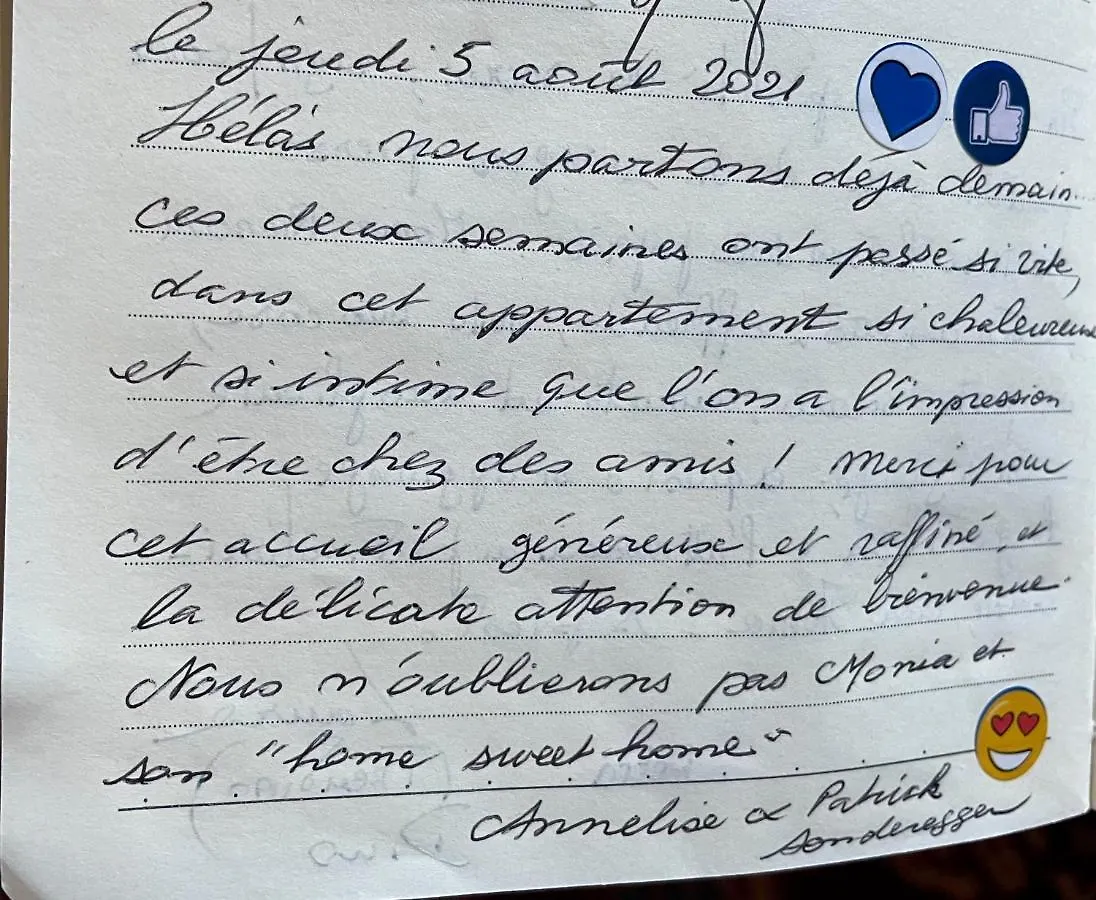 le jeudi 5 août 2021
Hélàs nous partons déjà demain.
ces deux semaines ont passé si vite,
dans cet appartement si chaleureux
et si intime que l'on a l'impression
d'être chez des amis ! Merci pour
cet accueil généreux et raffiné, et
la délicate attention de bienvenue.
Nous n'oublierons pas Monia et
son "home sweet home"
Annelise & Patrick
Sonderegger